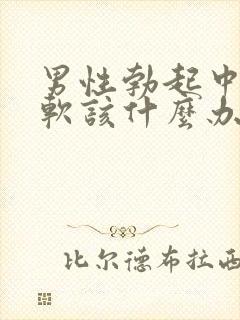 男性勃起中
軟該什麼办
比尔德布拉西